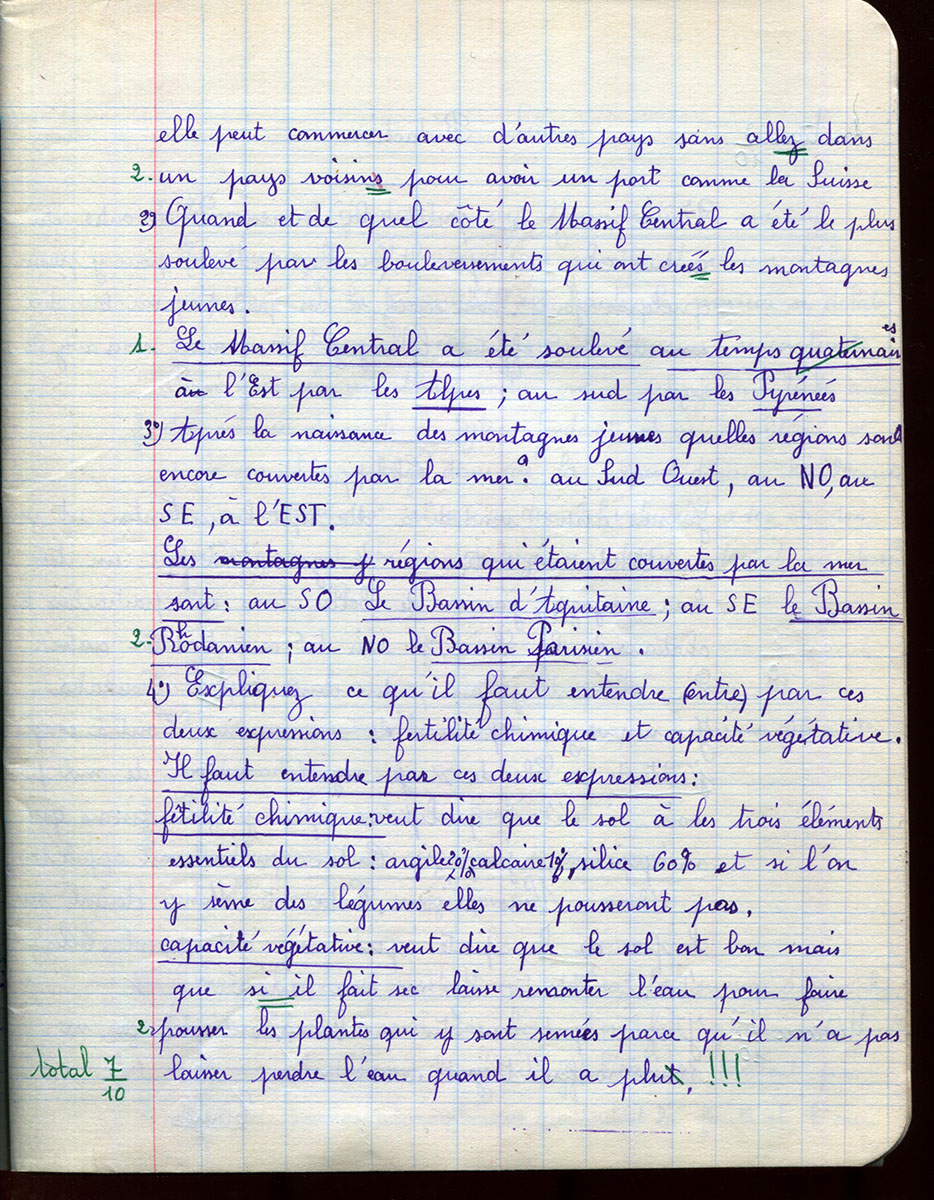 elle peut commercer avec d'autres pays sans allez dans
2. un pays voisins pour avoir un port comme la Suisse
2°) Quand et de quel côté le Massif Central a été le plus
soulevé par les bouleversements qui ont creés les montagnes
jeunes.
1. Le Massif Central a été soulevé au temps quaternaires
à l'Est par les Alpes ; au sud par les Pyrénées
3°) Aprés la naissance des montagnes jeunes quelles régions sont
encore couvertes par la mer ? au Sud Ouest, au NO, au
SE, à l'EST.
Les montagnes j régions qui étaient couvertes par la mer
sont : au SO Le Bassin d'Aquitaine ; au SE le Bassin
2. Rhodanien ; au NO le Bassin Parisien .
4°) Expliquez ce qu'il faut entendre (entre) par ces
deux expressions : fertilité chimique et capacité végétative.
Il faut entendre par ces deux expressions :
fêtilité chimique : veut dire que le sol à les trois éléments
essentiels du sol : argile 20% calcaire 10%, silice 60% et si l'on
y sème des légumes elles ne pousseront pas.
capacité végétative : veut dire que le sol est bon mais
que si il fait sec laisse remonter l'eau pour faire
2. pousser les plantes qui y sont semées parce qu'il n'a pas
total 7/10 laisser perdre l'eau quand il a plut. !!!